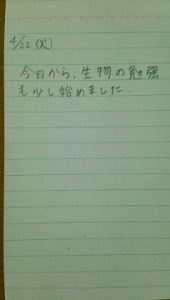 4/22 (火)
今日から、生物の勉強
も少し始めました